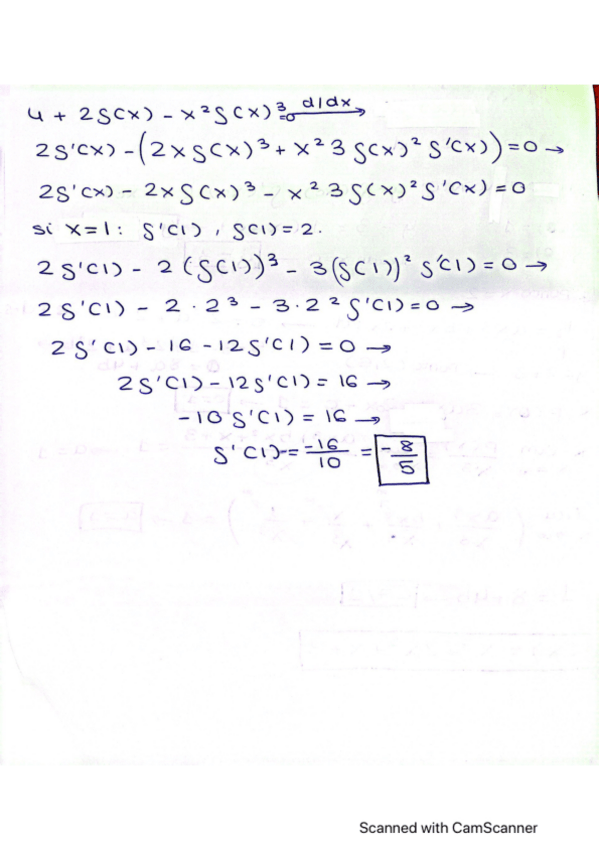 4 + 2f(x) - x²f(x)³=0 d/dx →
2f'(x) - (2xf(x)³ + x²3f(x)²f'(x)) = 0 →
2f'(x) - 2xf(x)³ - x²3f(x)²f'(x) = 0
si x=1: f'(1), f(1)=2.
2f'(1) - 2(f(1))³ - 3(f(1))²f'(1) = 0 →
2f'(1) - 2·2³ - 3·2²f'(1) = 0 →
2f'(1) - 16 - 12f'(1) = 0 →
2f'(1) - 12f'(1) = 16 →
-10f'(1) = 16 →
f'(1) = -16/10 = -8/5
Scanned with CamScanner